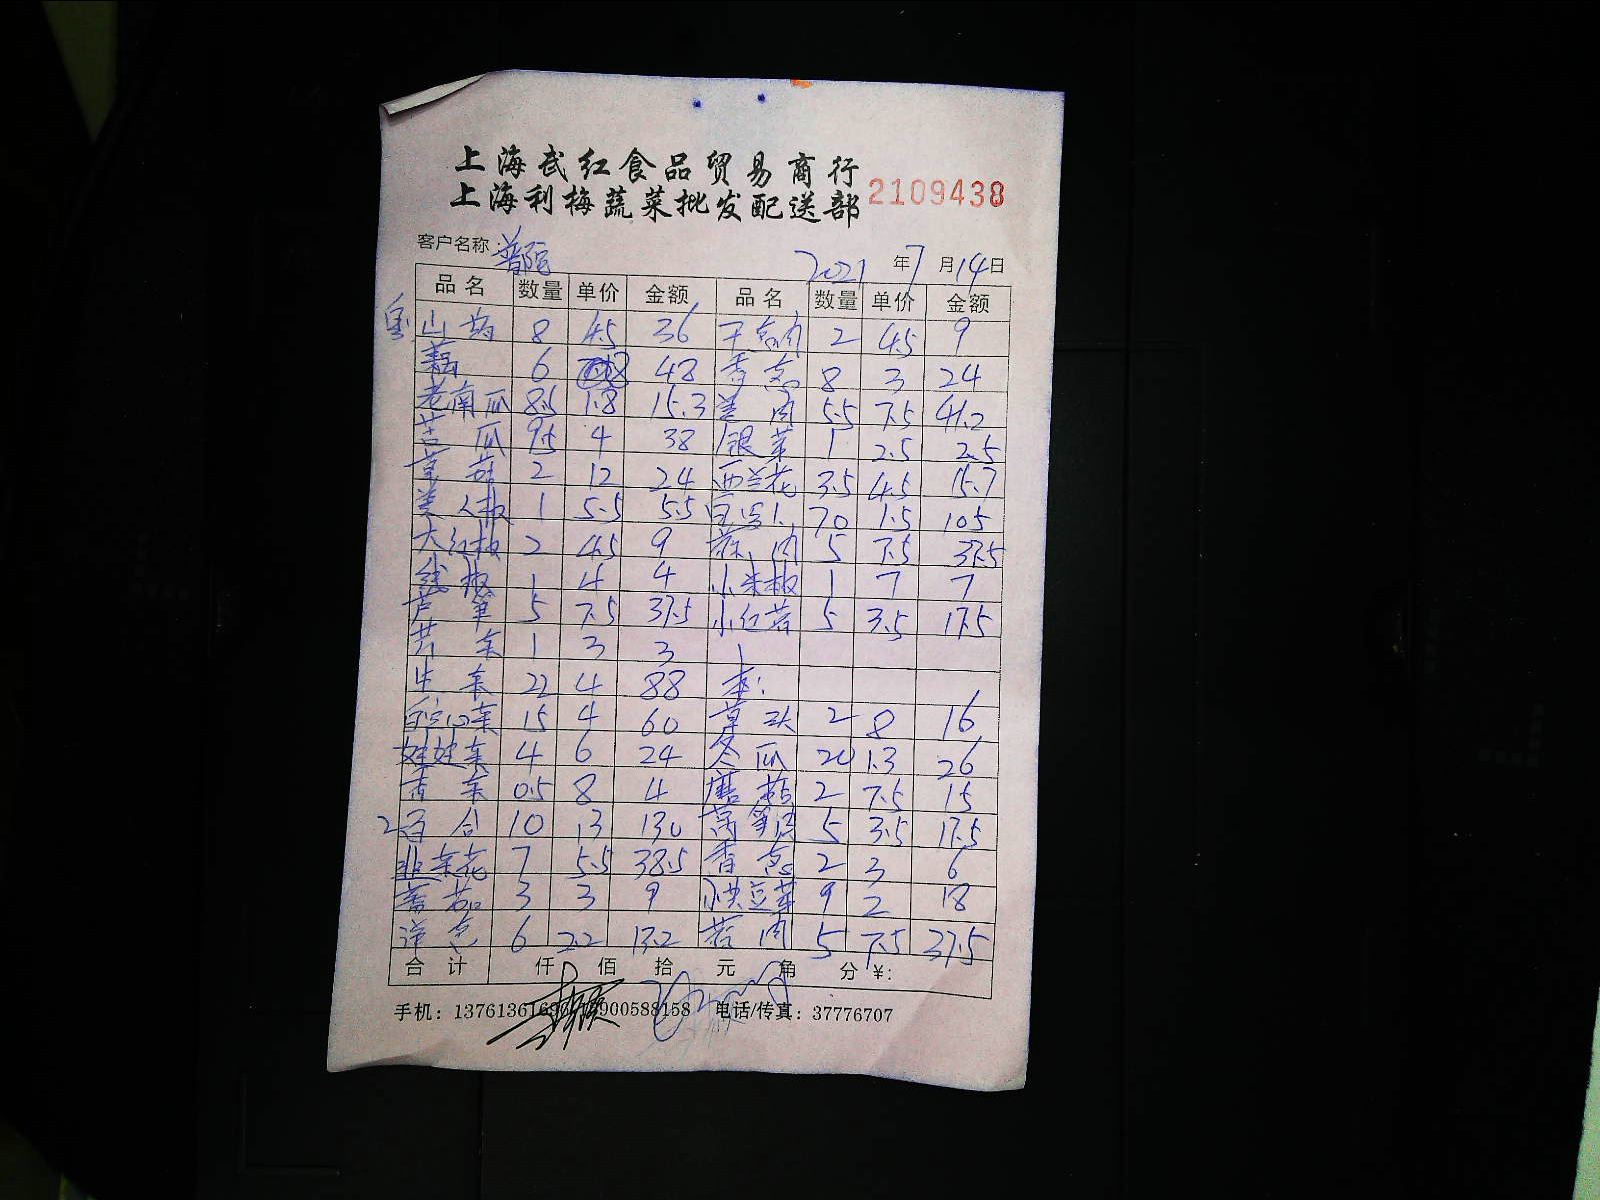 上海武红食品贸易商行
上海利梅蔬菜批发配送部 2109438
客户名称: 普陀 2021 年 7 月 14 日
品名 数量 单价 金额 品名 数量 单价 金额
山药 8 4.5 36 干葱肉 2 4.5 9
藕 6 8 48 香葱 8 3 24
老南瓜 8.5 1.8 15.3 姜肉 5.5 7.5 41.2
苦瓜 9.5 4 38 银芽 1 2.5 2.5
草菇 2 12 24 西兰花 3.5 4.5 15.7
美人椒 1 5.5 5.5 70 1.5 105
大红椒 2 4.5 9 蒜肉 5 7.5 37.5
线椒 1 4 4 小米椒 1 7 7
芦笋 5 7.5 37.5 小红茄 5 3.5 17.5
芹菜 1 3 3
生菜 22 4 88
15 4 60 草头 2 8 16
娃娃菜 4 6 24 冬瓜 20 1.3 26
香菜 0.5 8 4 蘑菇 2 7.5 15
2 百合 10 13 130 莴笋 5 3.5 17.5
韭菜花 7 5.5 38.5 香葱 2 3 6
番茄 3 3 9 小黄豆芽 9 2 18
洋葱 6 2.2 13.2 蒜肉 5 7.5 37.5
合计 仟 佰 拾 元 角 分 ¥:
手机: 13900588158 电话/传真: 37776707